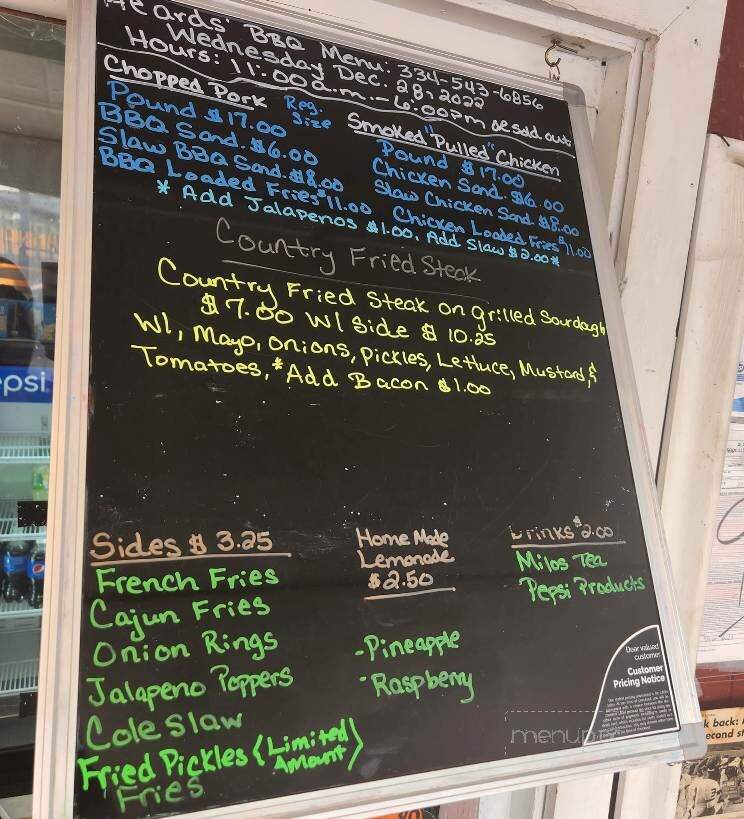 Heards' BBQ Menu: 334-543-6856
Wednesday Dec. 28, 2022
Hours: 11:00a.m.-6:00pm or sold out
Chopped Pork Reg. Size
Pound $17.00
BBQ Sand. $6.00
Slaw BBQ Sand. $8.00
BBQ Loaded Fries $11.00
Smoked "Pulled" Chicken
Pound $17.00
Chicken Sand. $6.00
Slaw Chicken Sand. $8.00
Chicken Loaded Fries $11.00
* Add Jalapenos $1.00, Add Slaw $2.00*
Country Fried Steak
Country Fried Steak on grilled Sourdough
$7.00 W/ Side $10.25
W/, Mayo, Onions, Pickles, Lettuce, Mustard, &
Tomatoes, *Add Bacon $1.00
Sides $3.25
French Fries
Cajun Fries
Onion Rings
Jalapeno Poppers
Cole Slaw
Fried Pickles (Limited Amount)
Fries
Home Made
Lemonade
$2.50
-Pineapple
-Raspberry
Drinks $2.00
Milos Tea
Pepsi Products
Dear valued
customer
Customer
Pricing Notice
menup
epsi
k back:
econd st